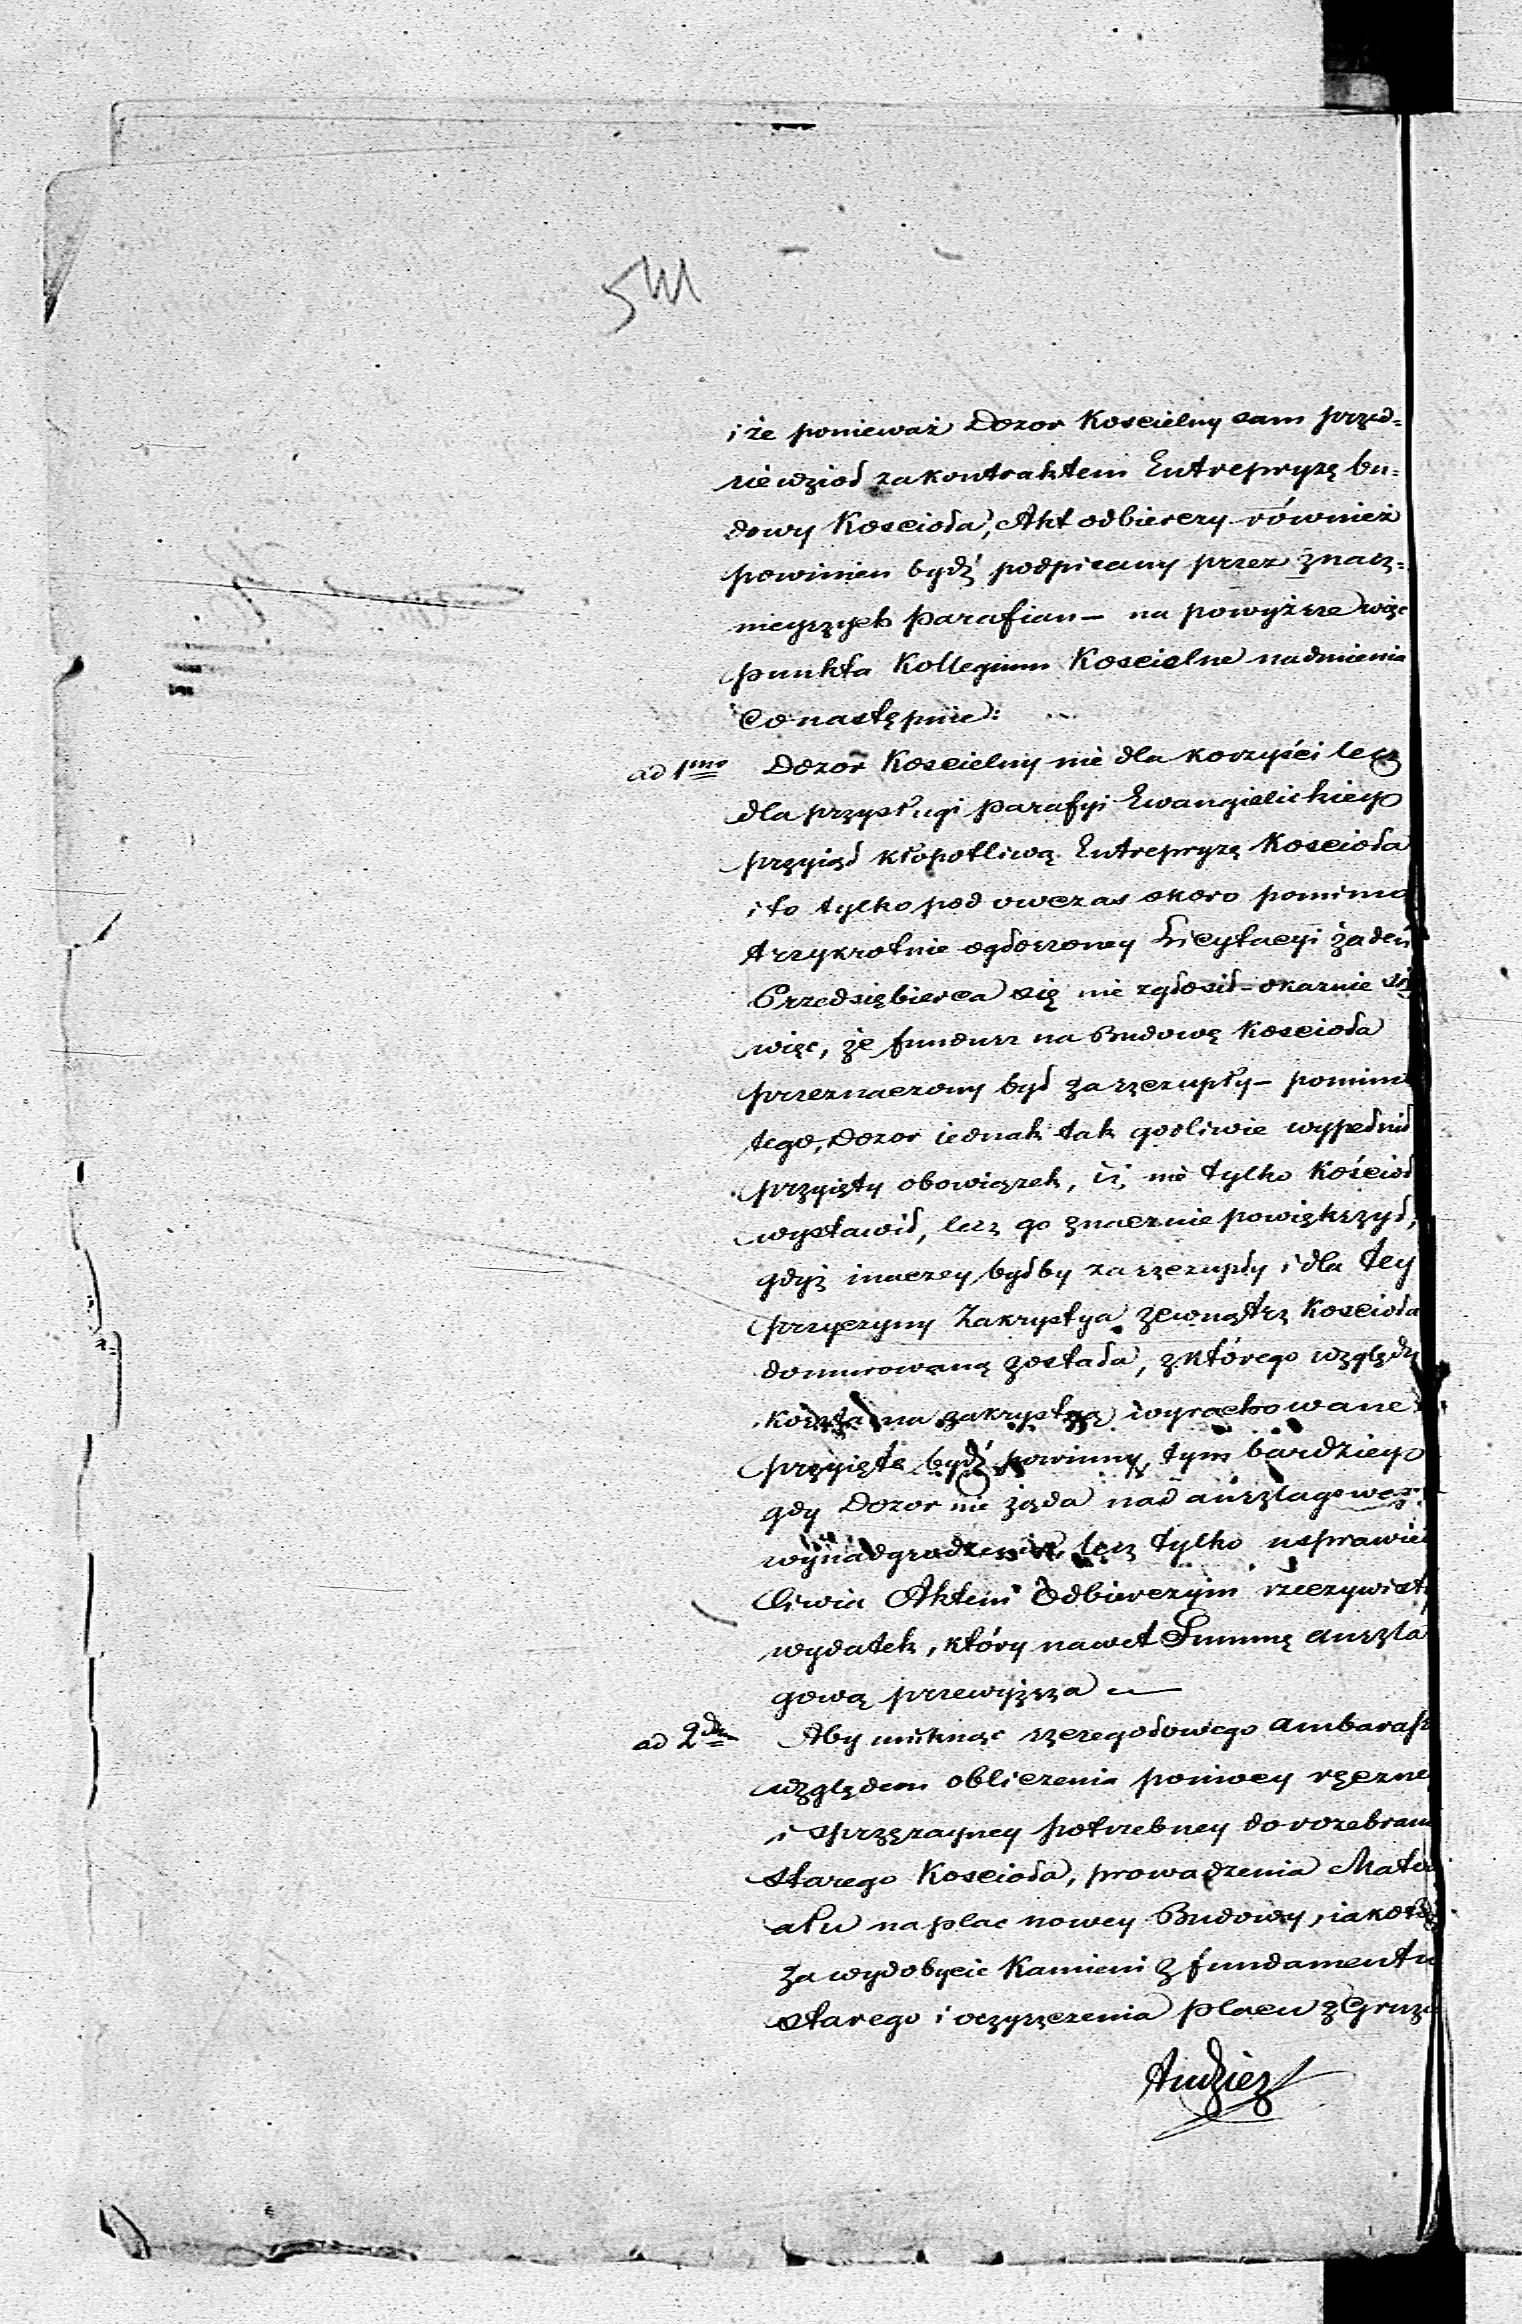 541
i że ponieważ Dozor Koscielny sam przed-
siewzioł zakontraktem Entrepryzę bu-
dowy Koscioła, Akt odbierczy również
powinien bydź podpisany przez znacz-
nieyszych Parafian – na powyższe więc
punkta Kollegium Koscielne nadmienia
co następnie:
ad 1mo Dozor Koscielny nie dla korzyści lecz
dla przysługi parafyi Ewangielickiey
przyiął kłopotliwą Entrepryzę Koscioła
i to tylko pod owczas skoro pomimo
trzykrotnie ogłoszoney Licytacyi żaden
Przedsiębierca się nie zgłosił – okazuie się
więc, że fundusz na Budowę Koscioła
przeznaczony był zaszczupły – pomimo
tego, Dozor iednak tak gorliwie wypełnił
przyięty obowiązek, iż nie tylko Kościoł
wystawił, lecz go znacznie powiększył,
gdyż inaczey byłby zaszczupły i dla tey
przyczyny Zakrystya zewnątrz Koscioła
domurowaną została, z którego względu
koszta na zakrystyą wyrachowane
przyięte bydź powinny, tym bardziey
gdy Dozor nie żąda nad anszlagowe
wynadgrodzenie, lecz tylko usprawied
liwia Aktem Odbierczym rzeczywisty
wydatek, który nawet Summę anszla
gową przewyższa —
ad 2do Aby uniknąc szczegołowego ambarasu
względem obliczenia pomocy ręczney
i sprzężayney potrzebney do rozebrania
starego Koscioła, prowadzenia Matery
ału na plac nowey Budowy, iakoteż
za wydobycie Kamieni z fundamentu
starego i oczyszczenia placu z Gruzu
tudzież